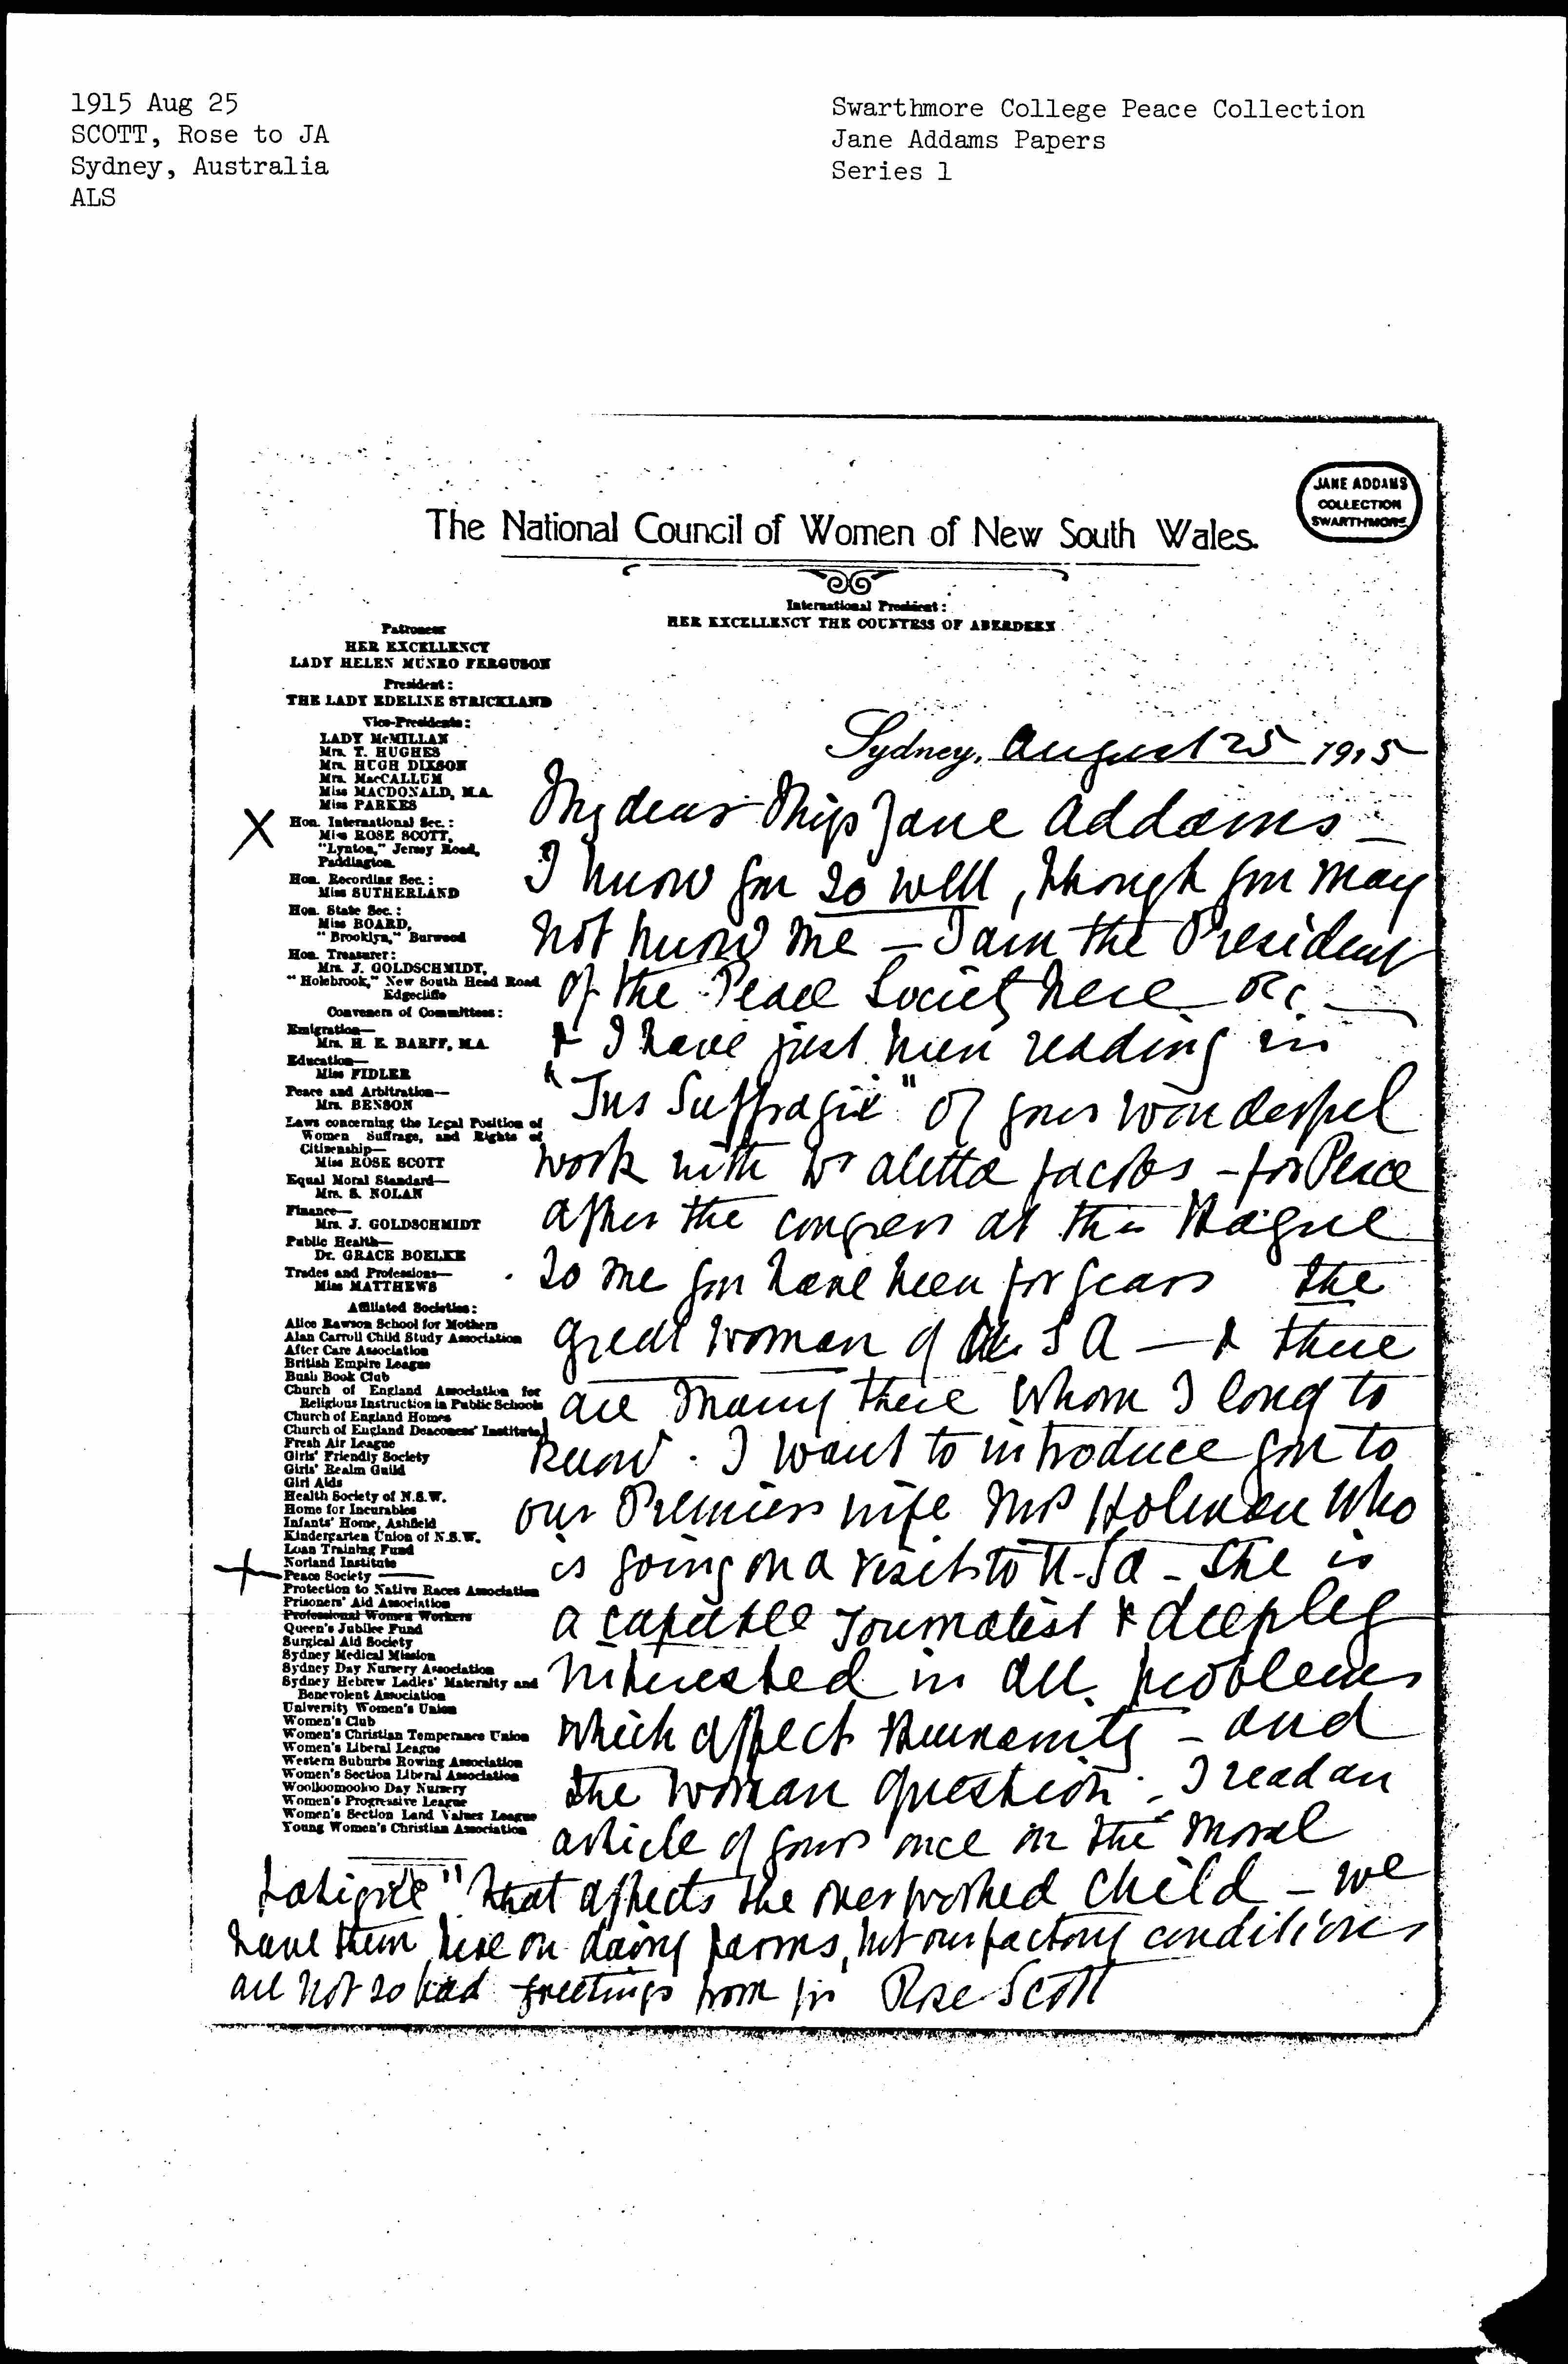 1915 Aug 25
SCOTT, Rose to JA
Sydney, Australia
ALS
Swarthmore College Peace Collection
Jane Addams Papers
Series 1
JANE ADDAMS
COLLECTION
SWARTHMORE
The National Council of Women of New South Wales.
International President:
HER EXCELLENCY THE COUNTESS OF ABERDEEN
Patroness
HER EXCELLENCY
LADY HELEN MUNRO FERGUSON
President:
THE LADY EDELINE STRICKLAND
Vice-Presidents:
LADY McMILLAN
Mrs. T. HUGHES
Mrs. HUGH DIXSON
Mrs. MacCALLUM
Miss MACDONALD, M.A.
Miss PARKES
X
Hon. International Sec.:
Miss ROSE SCOTT,
"Lynton," Jersey Road,
Paddington.
Hon. Recording Sec.:
Miss SUTHERLAND
Hon. State Sec.:
Miss BOARD,
"Brooklyn," Burwood
Hon. Treasurer:
Mrs. J. GOLDSCHMIDT,
"Holebrook," New South Head Road
Edgecliffe
Conveners of Committees:
Emigration—
Mrs. H. E. BARFF, M.A.
Education—
Miss FIDLER
Peace and Arbitration—
Mrs. BENSON
Laws concerning the Legal Position of
Women Suffrage, and Rights of
Citizenship—
Miss ROSE SCOTT
Equal Moral Standard—
Mrs. S. NOLAN
Finance—
Mrs. J. GOLDSCHMIDT
Public Health—
Dr. GRACE BOELKE
Trades and Professions—
Miss MATTHEWS
Affiliated Societies:
Alice Rawson School for Mothers
Alan Carroll Child Study Association
After Care Association
British Empire League
Bush Book Club
Church of England Association for
Religious Instruction in Public Schools
Church of England Homes
Church of England Deaconess' Institute
Fresh Air League
Girls' Friendly Society
Girls' Realm Guild
Girl Aids
Health Society of N.S.W.
Home for Incurables
Infants' Home, Ashfield
Kindergarten Union of N.S.W.
Loan Training Fund
Norland Institute
Peace Society
Protection to Native Races Association
Prisoners' Aid Association
Professional Women Workers
Queen's Jubilee Fund
Surgical Aid Society
Sydney Medical Mission
Sydney Day Nursery Association
Sydney Hebrew Ladies' Maternity and
Benevolent Association
University Women's Union
Women's Club
Women's Christian Temperance Union
Women's Liberal League
Western Suburbs Rowing Association
Women's Section Liberal Association
Woolloomooloo Day Nursery
Women's Progressive League
Women's Section Land Values League
Young Women's Christian Association
Sydney, August 25 1915
My dear Miss Jane Addams -
I know you so well, though you may
not know me - I am the President
of the Peace Society here &c -
& I have just been reading in
"Jus Suffragii" of your wonderful
work with Dr Aletta Jacobs - for Peace
after the congress at the Hague
to me you have been for years the
great woman of U S A — & there
are many there whom I long to
know. I want to introduce you to
our Premiers wife Mrs Holman who
is going on a visit to U.S.A - She is
a capable Journalist & deeply
interested in all problems
which affect Humanity - and
the woman question. I read an
article of yours once on the "moral
fatigue" that affects the over worked child - we
have them here on dairy farms, but our factory conditions
are not so bad greetings from yrs Rose Scott